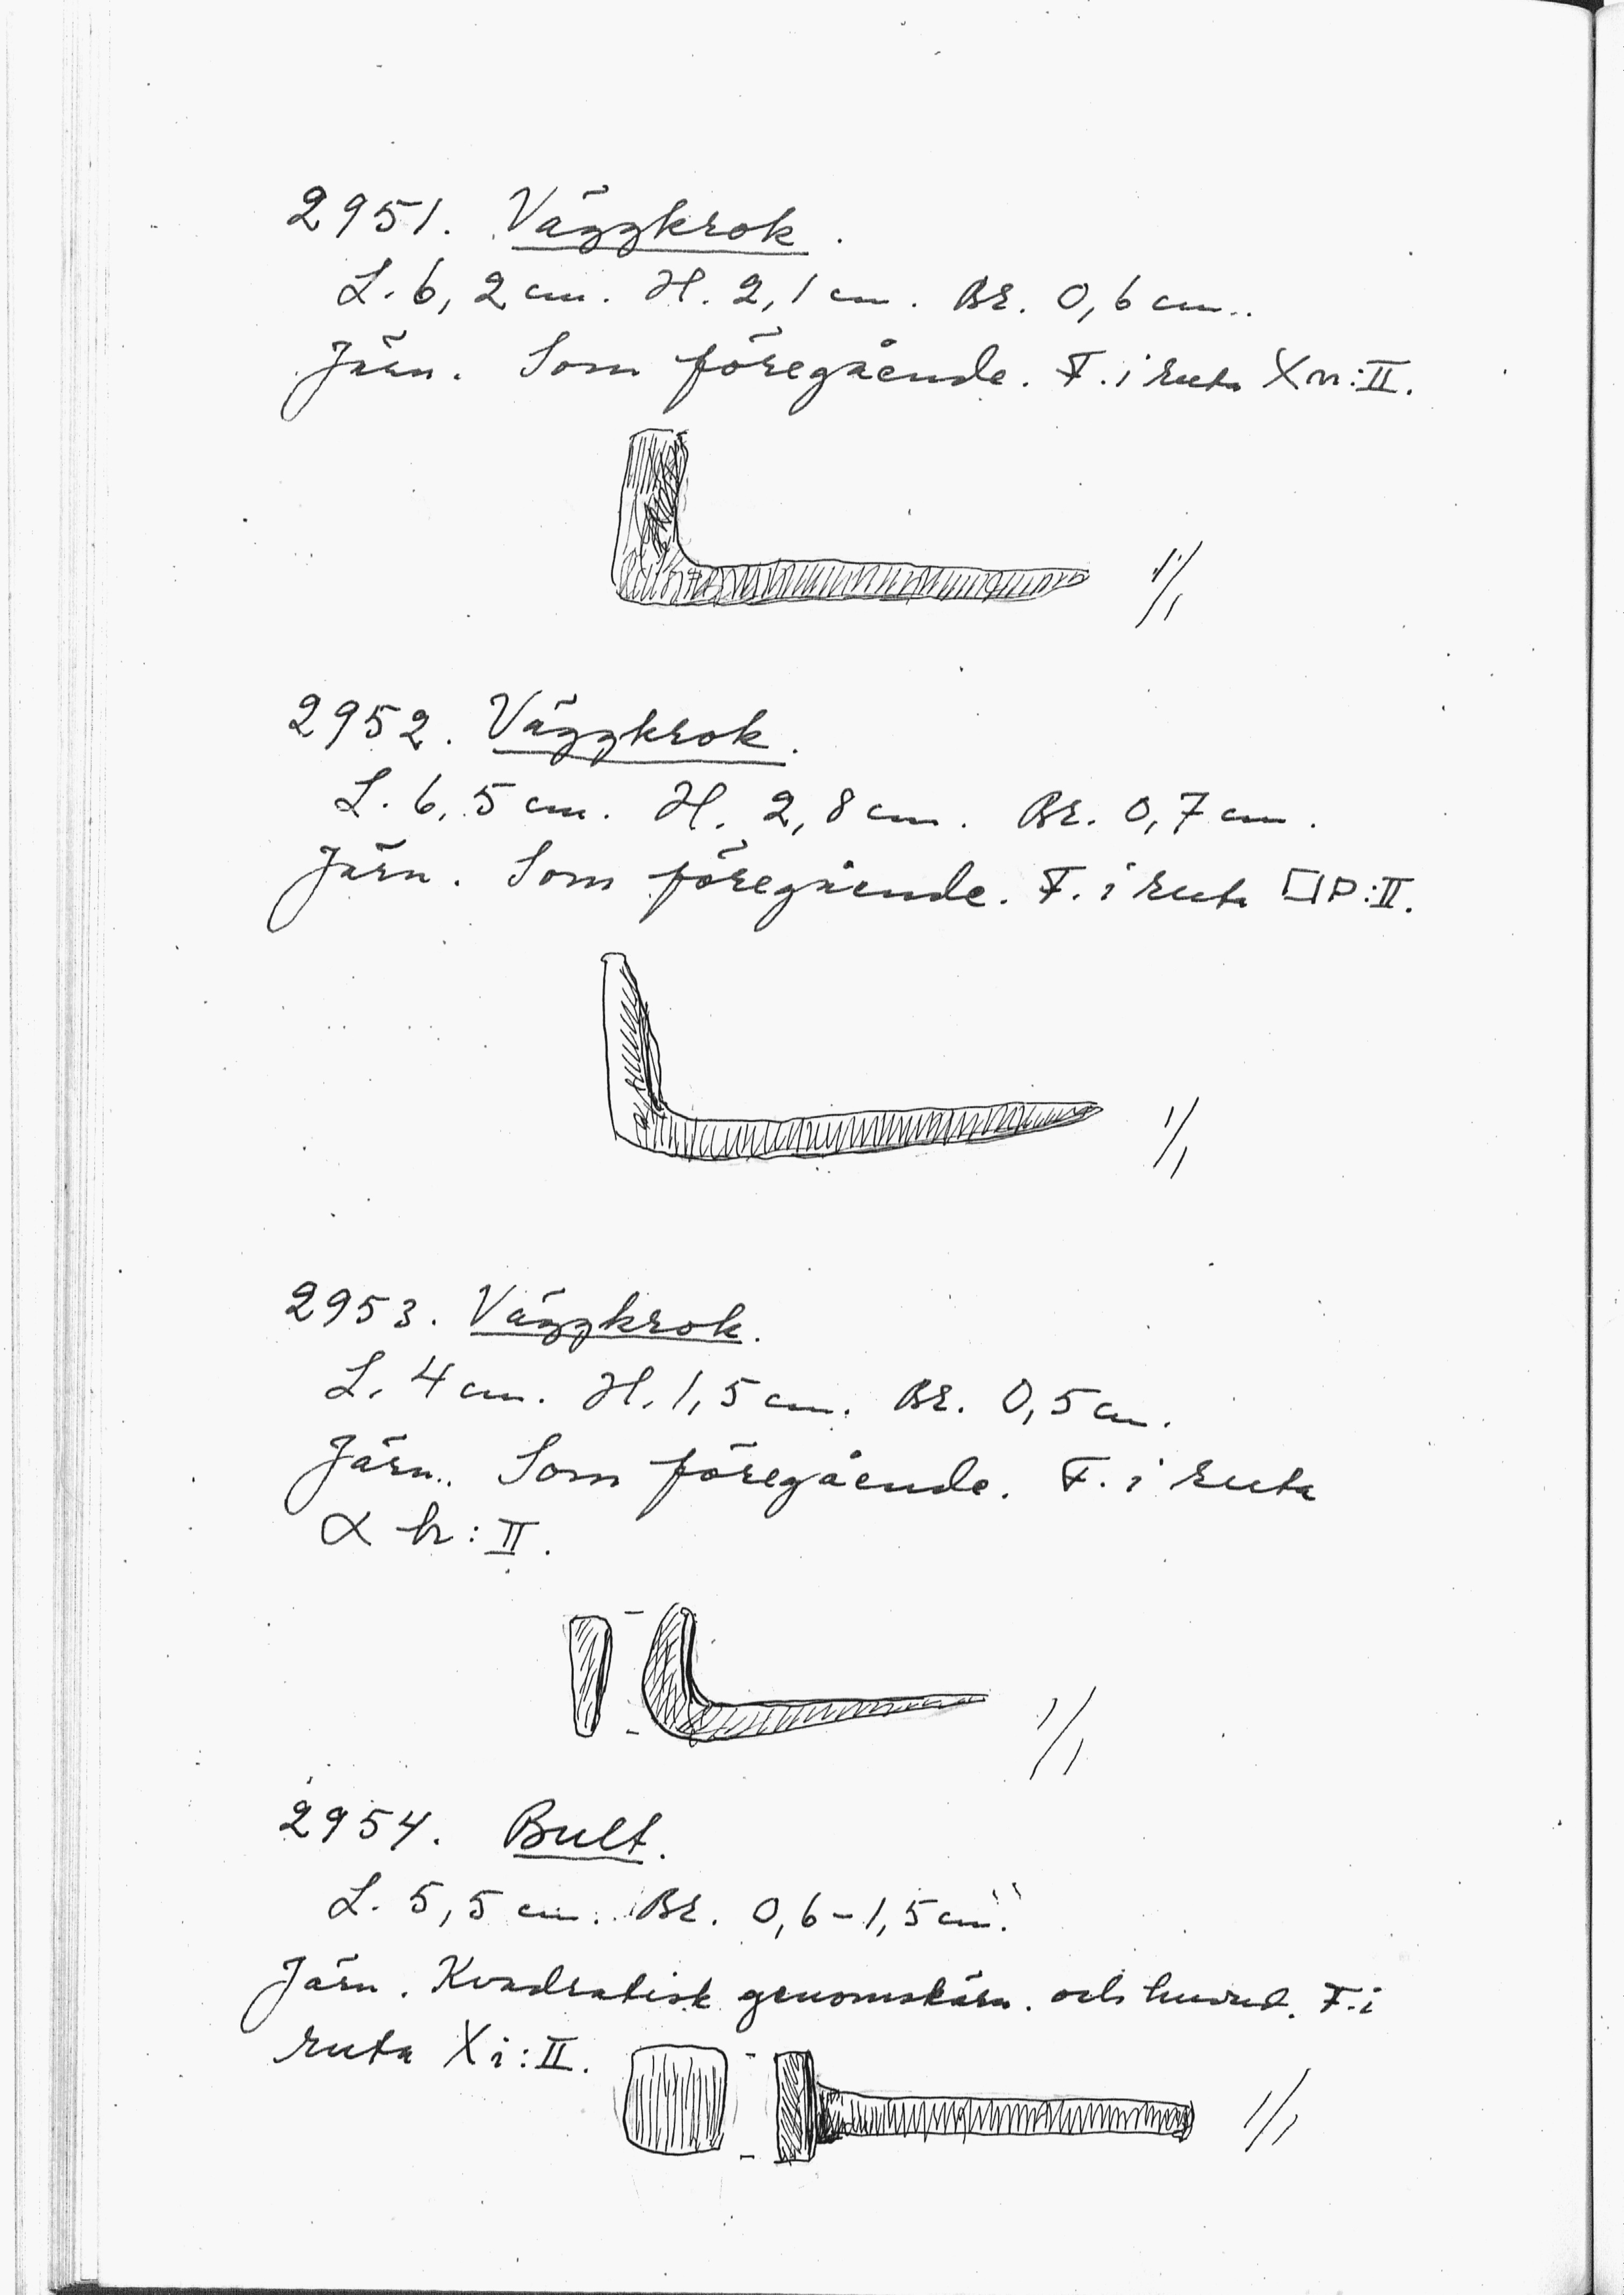 2951. Väggkrok.
L. 6,2 cm. H. 2,1 cm. Br. 0,6 cm.
Järn. Som föregående. F. i ruta Xm:II.
1/1
2952. Väggkrok.
L. 6,5 cm. H. 2,8 cm. Br. 0,7 cm.
Järn. Som föregående. F. i ruta □P:II.
1/1
2953. Väggkrok.
L. 4 cm. H. 1,5 cm. Br. 0,5 cm.
Järn. Som föregående. F. i ruta
α h:II.
1/1
2954. Bult.
L. 5,5 cm. Br. 0,6-1,5 cm.
Järn. Kvadratisk genomskärn. och huvud. F. i
ruta Xi:II.
1/1